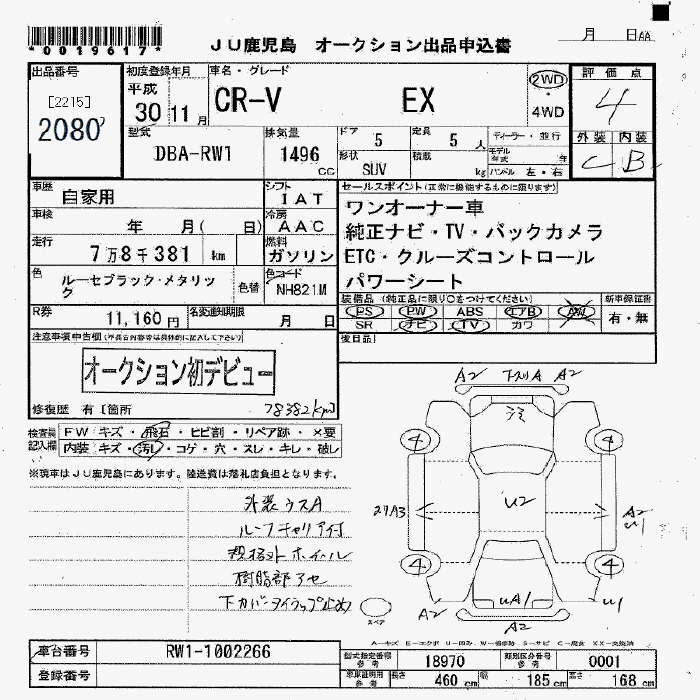 *0019617*
JU鹿児島 オークション出品申込書
月 日AA
出品番号
[2215]
2080
初度登録年月
平成
30 11月
車名・グレード
CR-V EX
2WD
・
4WD
評価点
4
型式
DBA-RW1
排気量
1496
cc
ドア
5
定員
5人
ディーラー・並行
形状
SUV
積載
kg
モデル
年式 年
ハンドル 左・右
外装 内装
C B
車歴
自家用
シフト
IAT
車検
年 月( 日)
冷房
AAC
走行
7万8千381 km
燃料
ガソリン
色
ルーセブラック・メタリッ
ク
色替
色コード
NH821M
R券
11,160円
名変通知期限
月 日
セールスポイント(正常に機能するものに限ります)
ワンオーナー車
純正ナビ・TV・バックカメラ
ETC・クルーズコントロール
パワーシート
装備品(純正品に限り○をつけてください)
新車保証書
PS PW ABS エアB AW
SR ナビ TV カワ
有・無
後日品
注意事項申告欄
オークション初デビュー
修復歴 有 [箇所
78382km]
検査員
記入欄
FW キズ・飛石・ヒビ割・リペア跡・×要
内装 キズ・汚レ・コゲ・穴・スレ・キレ・破レ
※現車はJU鹿児島にあります。陸送費は落札店負担となります。
外装ウスA
ルーフキャリア付
規格外ホイール
樹脂部アセ
下カバータイラップ止め
A2 下スリA A2
4 4
U2
A2
U1
4 4
UA1
A2 A2 U1
スペア
車台番号
RW1-1002266
登録番号
型式指定番号
参考
18970
類別区分番号
参考
0001
車庫証明用
参考
長さ
460 cm
幅
185 cm
高さ
168 cm